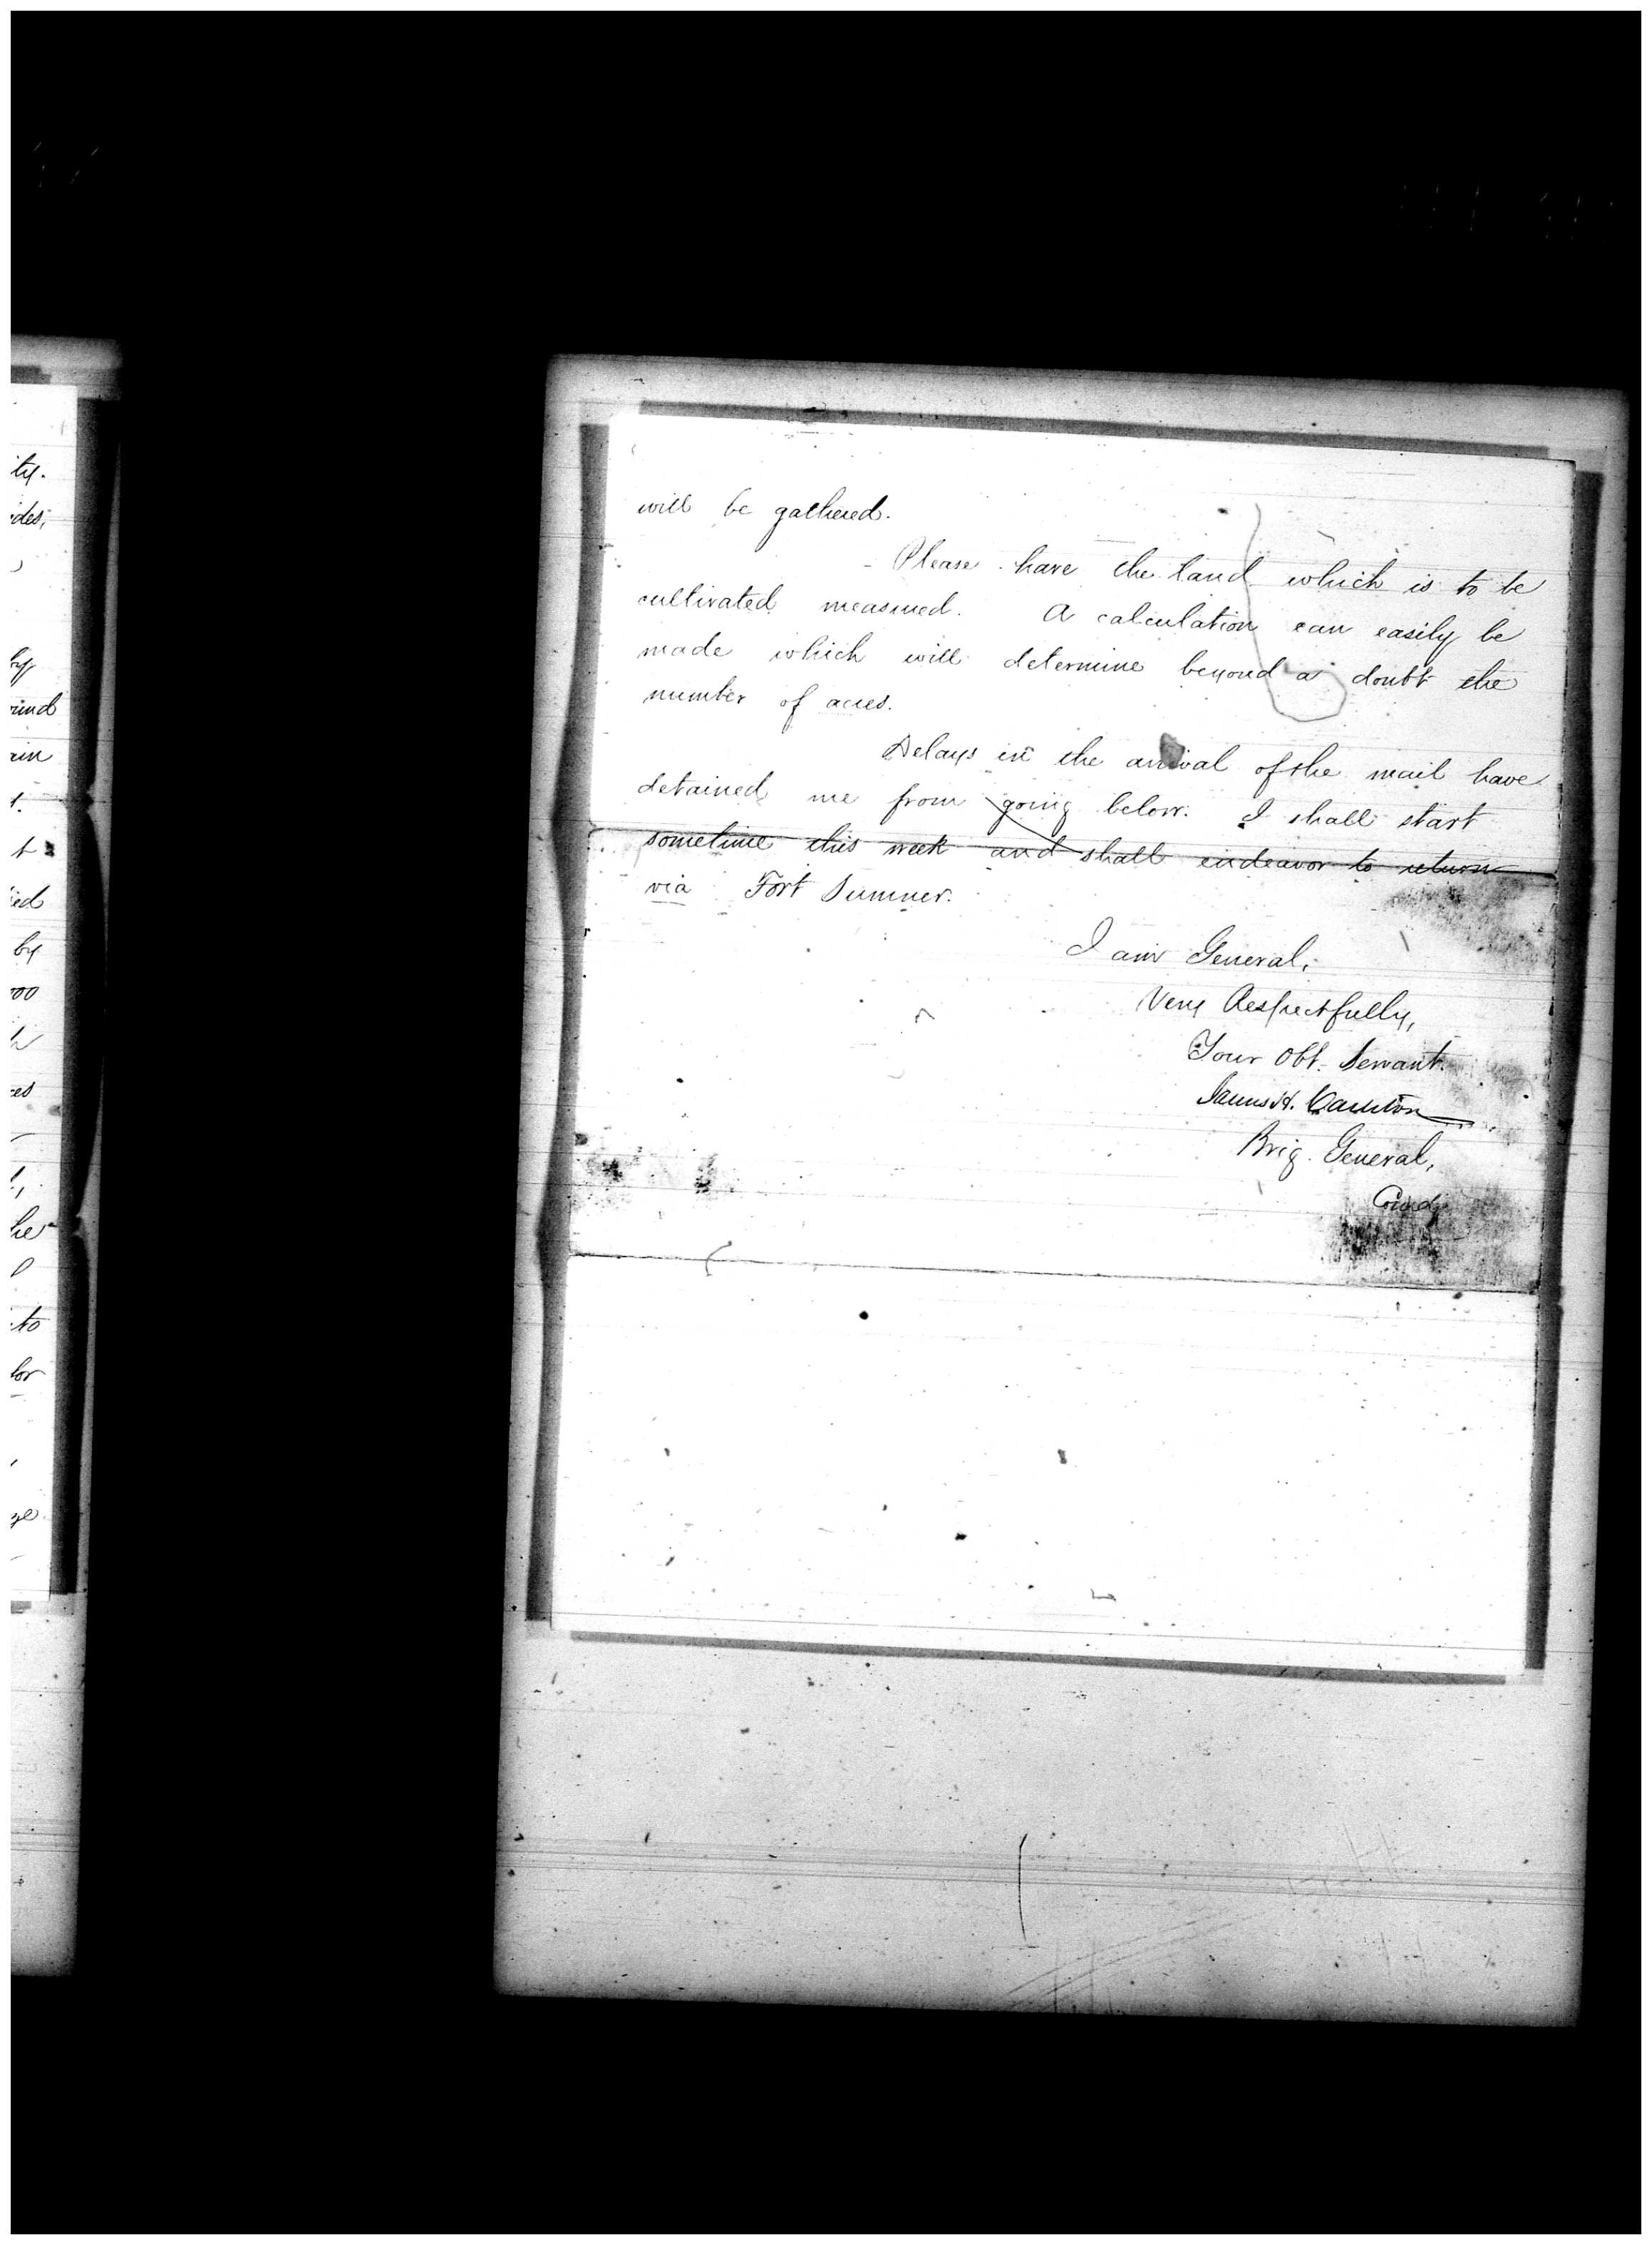 will be gathered.
Please have the land which is to be
cultivated measured. A calculation can easily be
made which will determine beyond a doubt the
number of acres.
Delays in the arrival of the mail have
detained me from going below. I shall start
sometime this week and shall endeavor to return
via Fort Sumner.
I am General,
Very Respectfully,
Your Obt. Servant.
James H. Carleton
Brig. General,
Comdg